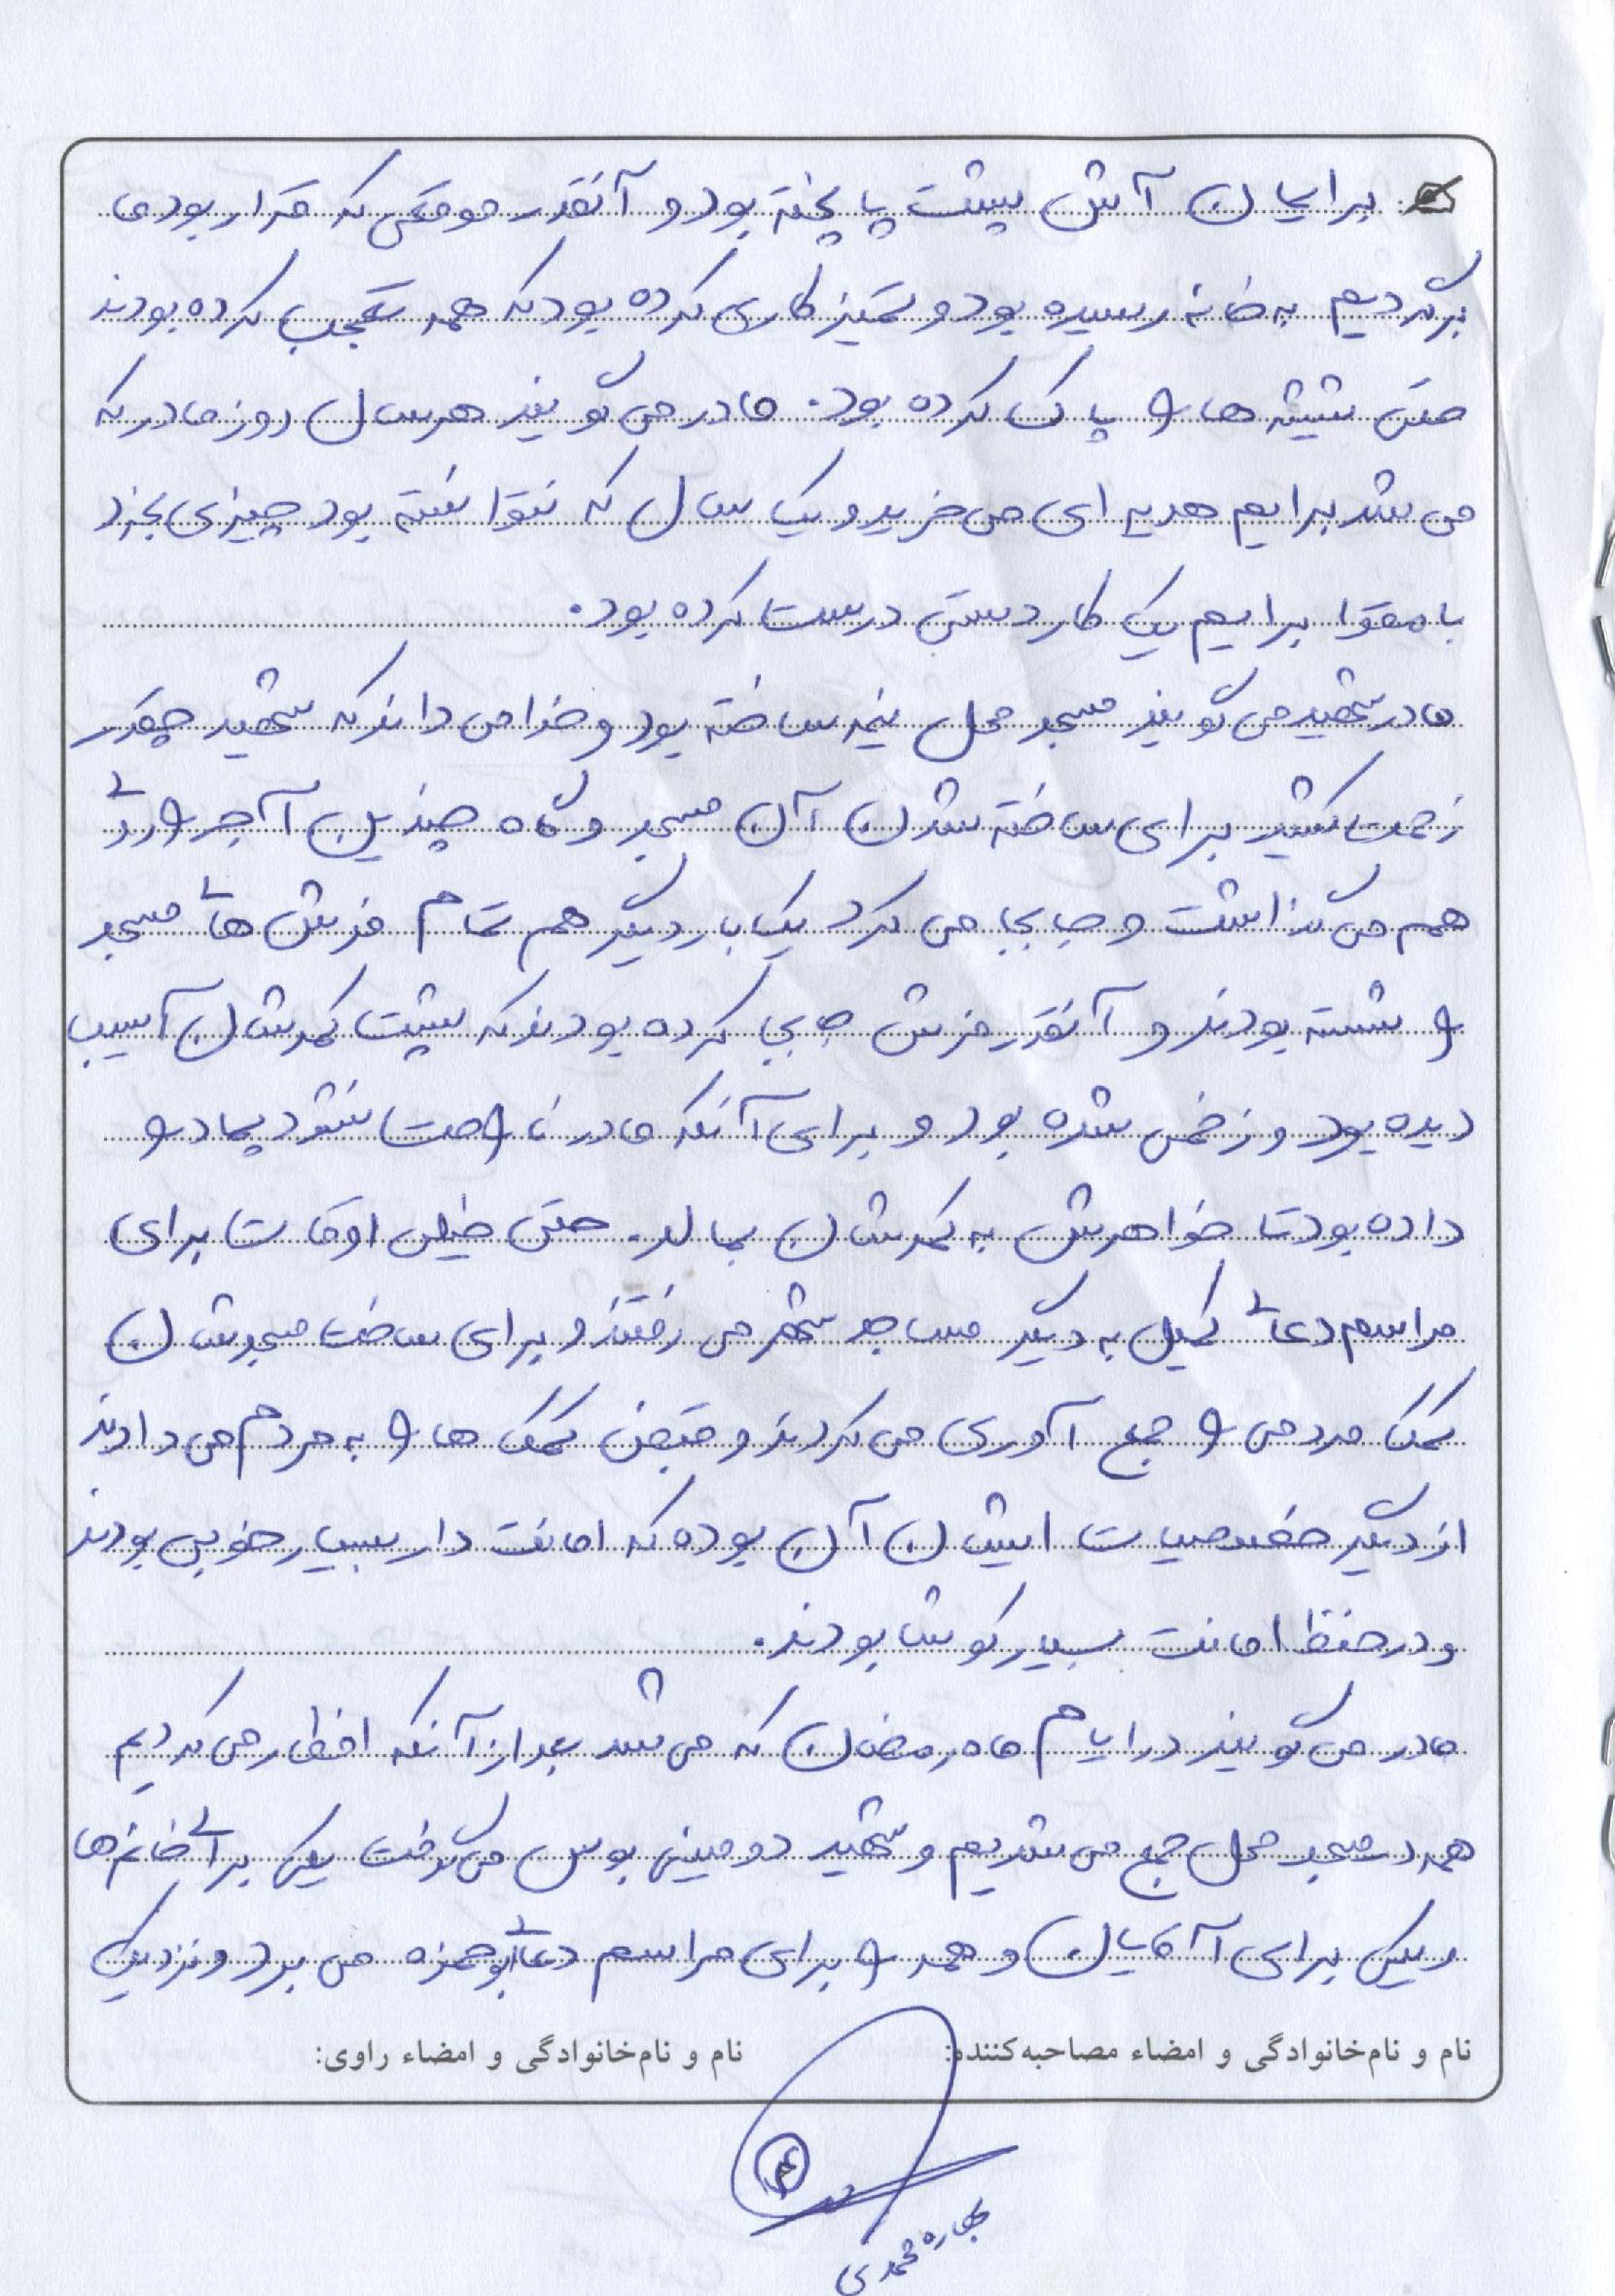 برایمان آش پشت پا پخته بود و آنقدر موقعی که قرار بود ما
برگردیم به خانه رسیده بود و تمیز کاری کرده بود که همه تعجب کرده بودند
حتی شیشه ها را پاک کرده بود. مادر می گویند هر سال روز مادر که
می شد برایم هدیه ای می خرید و یک سال که نتوانسته بود چیزی بخرد
با مقوا برایم یک کاردستی درست کرده بود.
مادر شهید می گویند مسجد محل نیمه ساخته بود و خدا می داند که شهید چقدر
زحمت کشید برای ساخته شدن آن مسجد و گاه چندین آجر را روی
هم می گذاشت و جابجا می کرد یکبار دیگر هم تمام فرش های مسجد
را شسته بودند و آنقدر فرش جابجا کرده بودند که پشت کمرشان آسیب
دیده بود و زخمی شده بود و برای آنکه مادر ناراحت نشود پماد را
داده بود تا خواهرش به کمرشان بمالد. حتی خیلی اوقات برای
مراسم دعای کمیل به دیگر مساجد شهر می رفتند و برای ساخت مسجدشان
کمک مردمی را جمع آوری می کردند و قبض کمک ها را به مردم می دادند
از دیگر خصوصیات ایشان آن بوده که امانت دار بسیار خوبی بودند
و در حفظ امانت بسیار کوشا بودند.
مادر می گویند در ایام ماه رمضان که می شد بعد از آنکه افطار می کردیم
همه در مسجد محل جمع می شدیم و شهید دو مینی بوس می گرفت یکی برای خانم ها
و یکی برای آقایان و همه را برای مراسم دعای ابوحمزه می برد و نزدیک
نام و نام‌خانوادگی و امضاء مصاحبه‌کننده: نام و نام‌خانوادگی و امضاء راوی:
بهاره محمدی